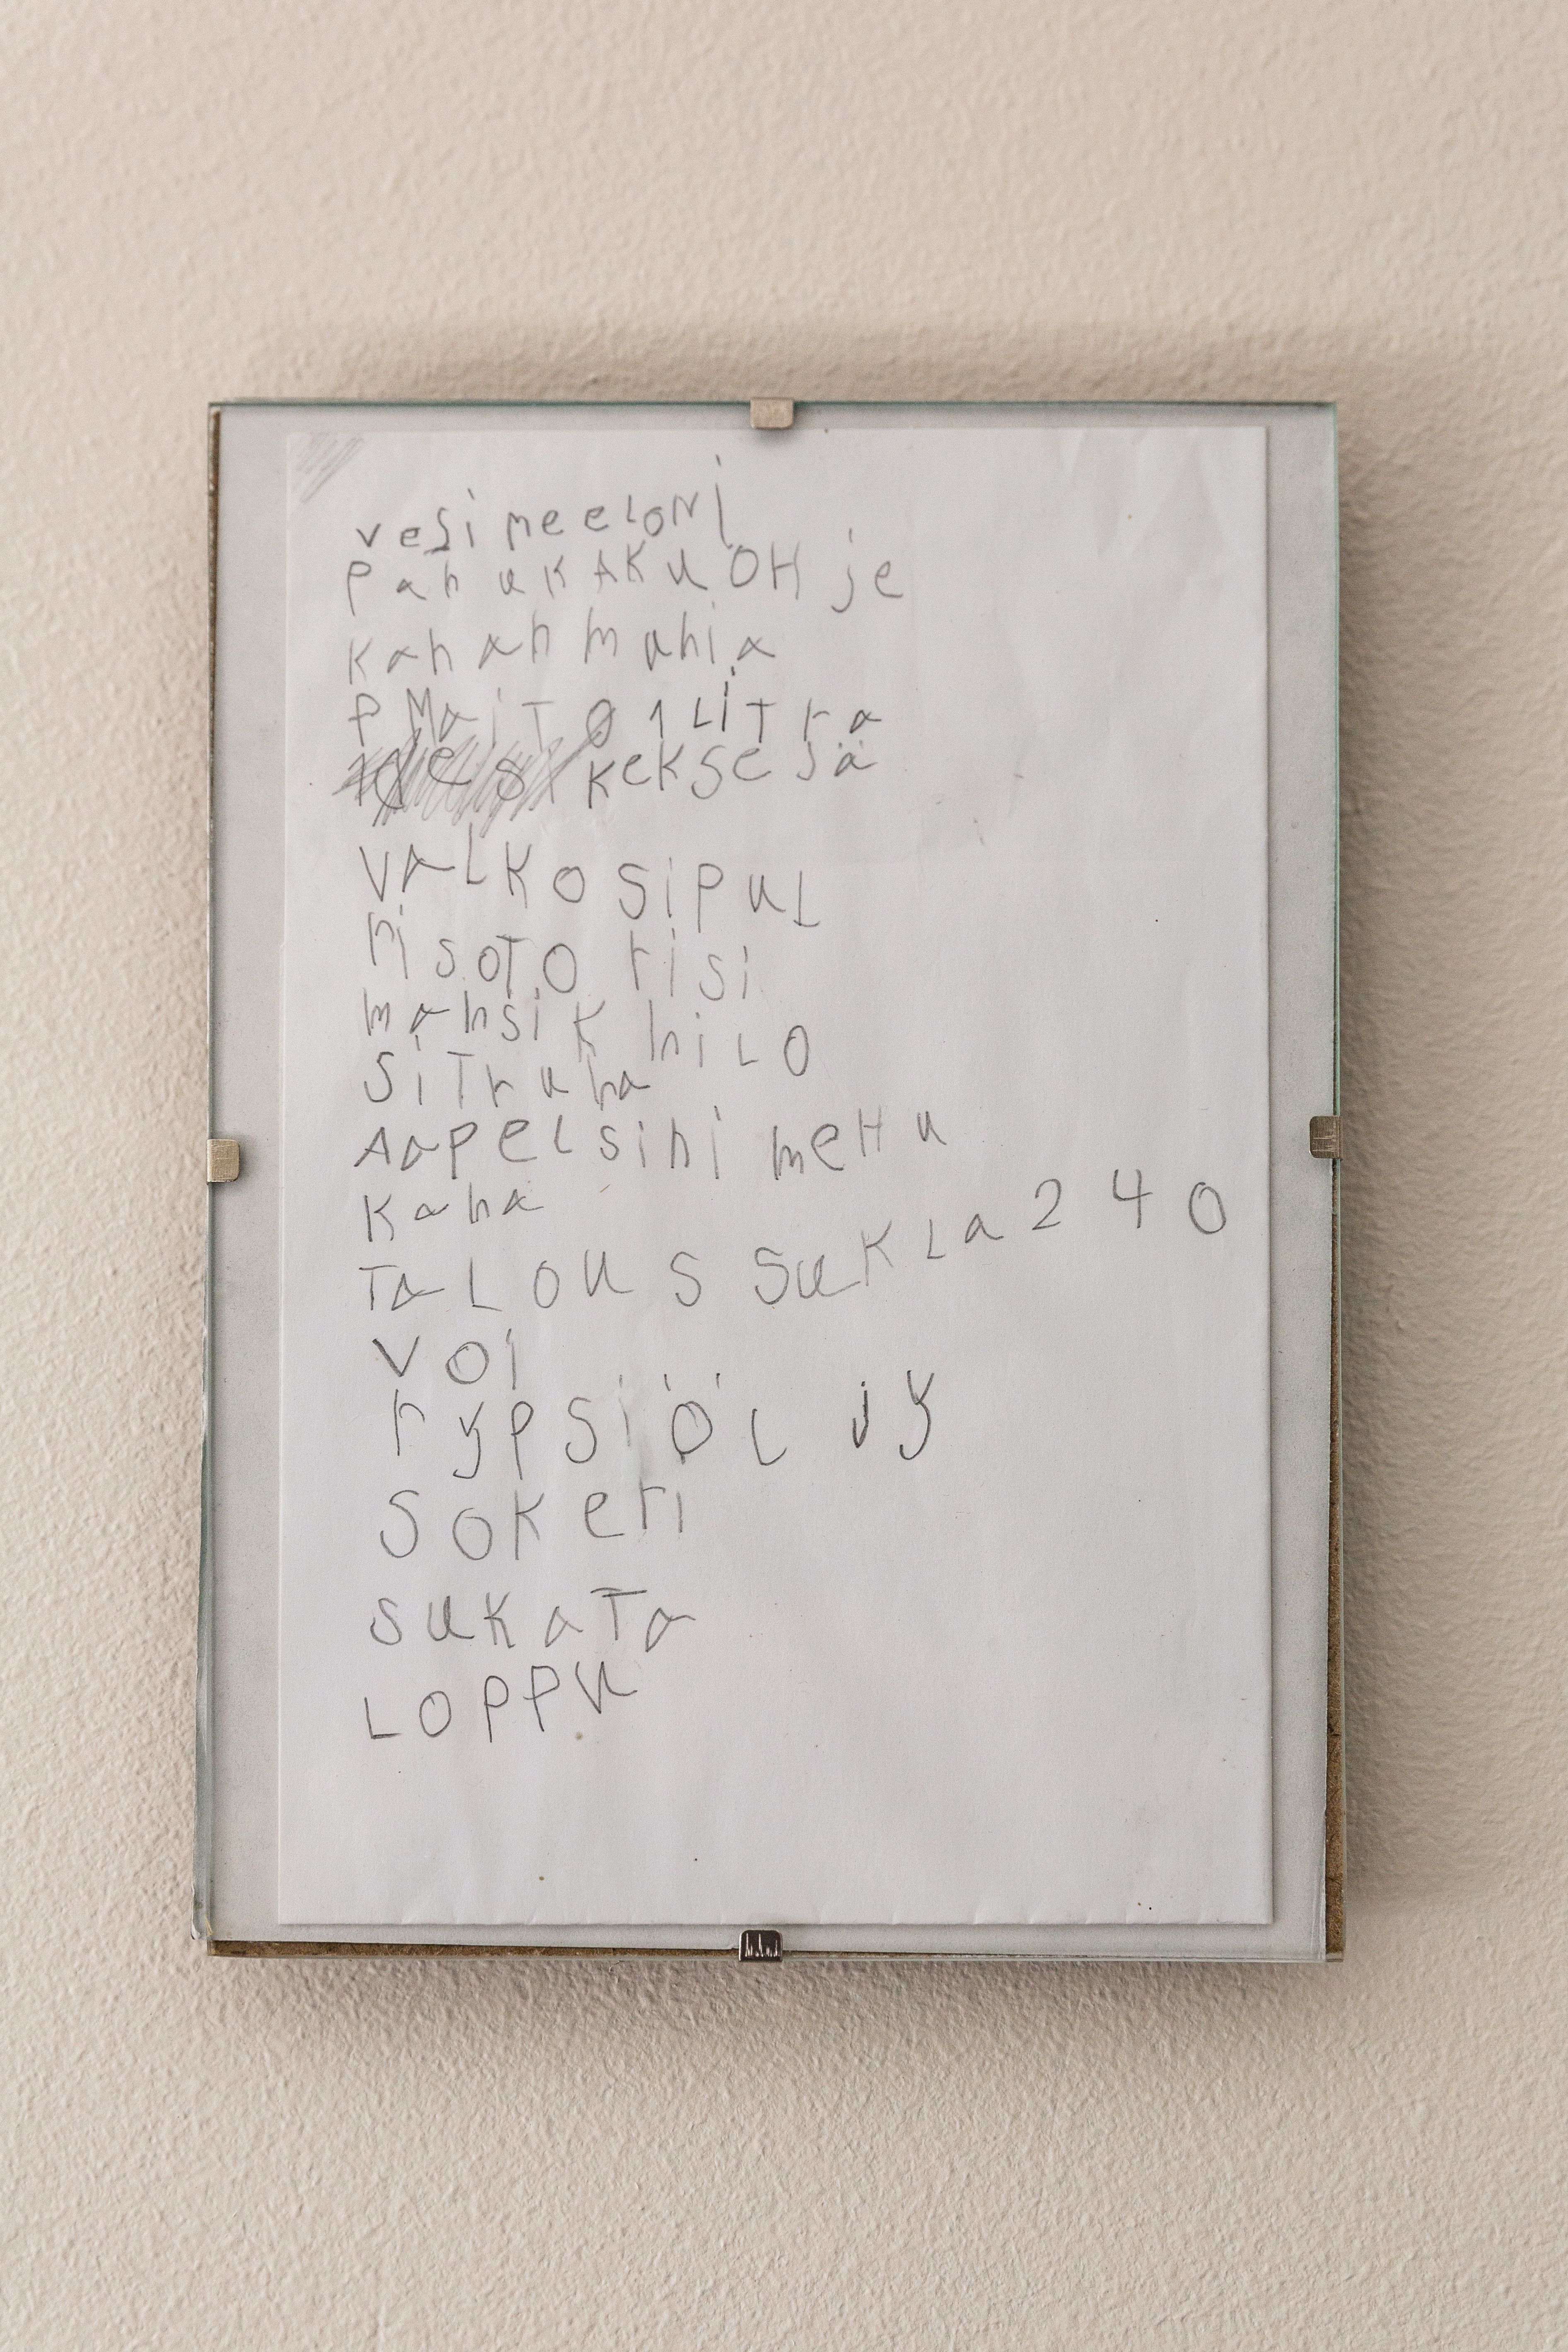 vesi meeloni
panukakuOHje
kanan munia
P MaiTO 1 LiTra
kekseja
vaLKOSipuL
riSOTO riSi
mansik hiLO
SiTruna
AapeLsini meHu
Kana
TaLOuS SuKLa 240
vOi
rypSiöLjy
SOKeri
SuKaTa
LOPPu